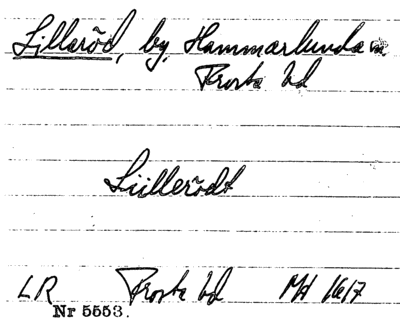 Lillaröd, by, Hammarlunda sn
Frosta hd
Lüllerödt
LR Frosta hd MH 1617
Nr 5553.